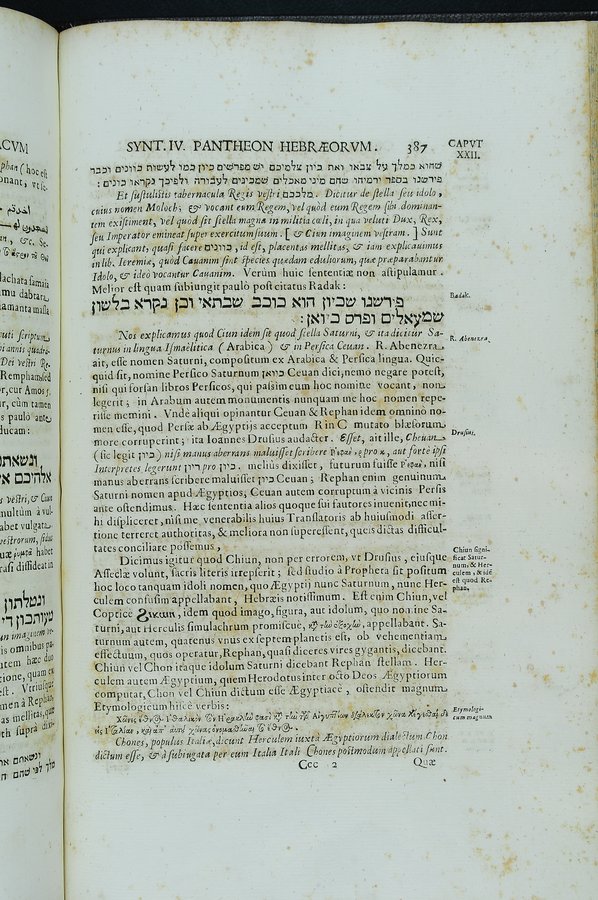 SYNT. IV. PANTHEON HEBRÆORVM. 387 CAPVT XXII.
שהוא כמלך על צבאו ואת כיון צלמיכם יש מפרשים כיון כמו לעשות כוונים וכבר
פירשנו בספר ירמיהו שהם מיני מאכלים שמכינים לעבודה ולפיכך נקראו כונים :
Et sustulistis tabernacula Regis vestri מלככם. Dicitur de stella seu idolo,
cuius nomen Moloch; & vocant eum Regem, vel quòd eum Regem sibi dominan-
tem existiment, vel quod sit stella magna in militia cœli, in qua veluti Dux, Rex,
seu Imperator emineat super exercitum suum. [& Ciun imaginem vestram.] Sunt
qui explicant, quasi facere כוונים, id est, placentas mellitas, & iam explicauimus
in lib. Ieremiæ, quòd Cauanim sint species quædam eduliorum, quæ præparabantur
Idolo, & ideò vocantur Cauanim. Verùm huic sententiæ non astipulamur.
Melior est quam subiungit paulò post citatus Radak:
Radak.
פירשנו שכיון הוא כוכב שבתאי וכן נקרא בלשון
שמעאלים ופרס כיואן:
Nos explicamus quod Ciun idem sit quod stella Saturni, & ita dicitur Sa-
turnus in lingua Ismaëlitica (Arabica) & in Persica Ceuan. R. Abenezra
R. Abenezra.
ait, esse nomen Saturni, compositum ex Arabica & Persica lingua. Quic-
quid sit, nomine Persico Saturnum כיואן Ceuan dici, nemo negare potest,
nisi qui forsan libros Persicos, qui passim eum hoc nomine vocant, non
legerit; in Arabum autem monumentis nunquam me hoc nomen repe-
risse memini. Vnde aliqui opinantur Ceuan & Rephan idem omninò no-
men esse, quod Persæ ab Ægyptijs acceptum R in C mutato blæsorum
more corruperint; ita Ioannes Drusius audacter. Esset, ait ille, Cheuan
Drusius.
(sic legit כיון) nisi manus aberrans maluisset scribere pro aut fortè ipsi
Interpretes legerunt ריון pro כיון. melius dixisset, futurum fuisse nisi
manus aberrans scribere maluisset כיון Ceuan; Rephan enim genuinum
Saturni nomen apud Ægyptios, Ceuan autem corruptum à vicinis Persis
ante ostendimus. Hæc sententia alios quoque sui fautores inuenit, nec mi-
hi displiceret, nisi me venerabilis huius Translatoris ab huiusmodi asser-
tione terreret authoritas, & meliora non superessent, queis dictas difficul-
tates conciliare possemus,
Dicimus igitur quod Chiun, non per errorem, vt Drusius, eiusque
Asseclæ volunt, sacris literis irrepserit; sed studio à Propheta sit positum
hoc loco tanquam idoli nomen, quo Ægyptij nunc Saturnum, nunc Her-
culem confusim appellabant, Hebræis notissimum. Est enim Chiun, vel
Chiun signi-
ficat Satur-
num, & Her-
culem, & idẽ
est quod Re-
phan.
Copticè idem quod imago, figura, aut idolum, quo non ine Sa-
turni, aut Herculis simulachrum promiscuè, appellabant. Sa-
turnum autem, quatenus vnus ex septem planetis est, ob vehementiam
effectuum, quos operatur, Rephan, quasi diceres vires gygantis, dicebant.
Chiun vel Chon itaque idolum Saturni dicebant Rephan stellam. Her-
culem autem Ægyptium, quem Herodotus inter octo Deos Ægyptiorum
computat, Chon vel Chiun dictum esse Ægyptiacè, ostendit magnum
Etymologicum hisce verbis:
Etymologi-
cum magnum
Chones, populus Italiæ, dicunt Herculem iuxtà Ægyptiorum dialectum Chon
dictum esse, & à subiugata per eum Italia Itali Chones postmodum appellati sunt.
Ccc 2 Quæ